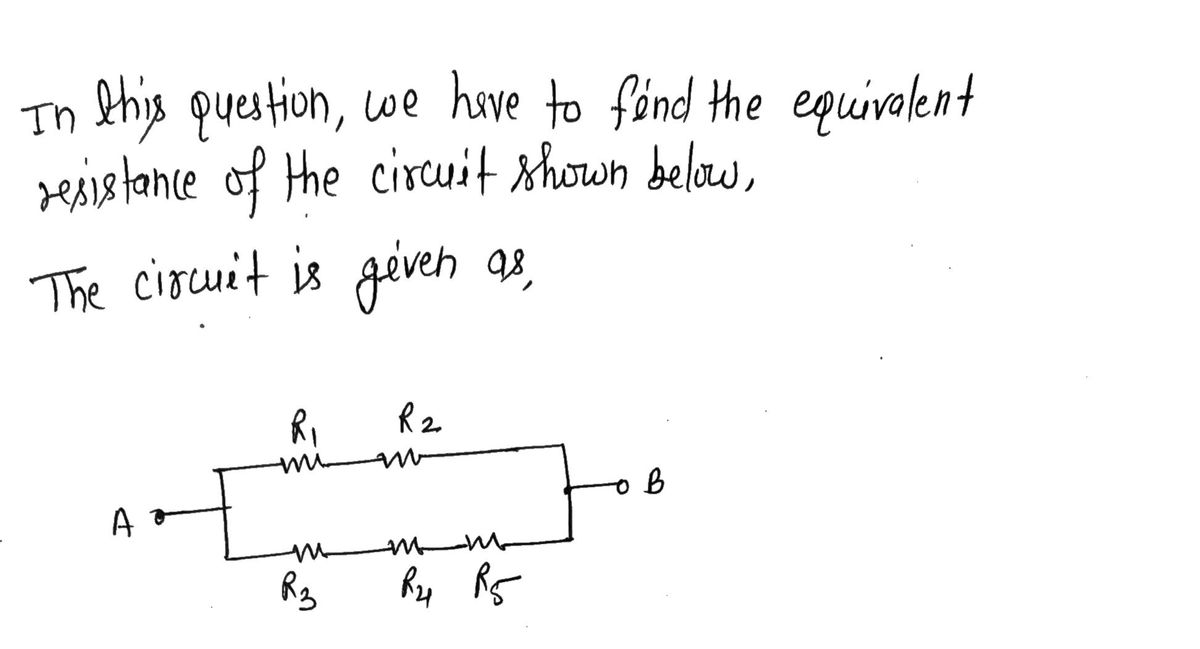 In this question, we have to find the equivalent
resistance of the circuit shown below,
The circuit is given as,
R1 R2
A B
R3 R4 R5